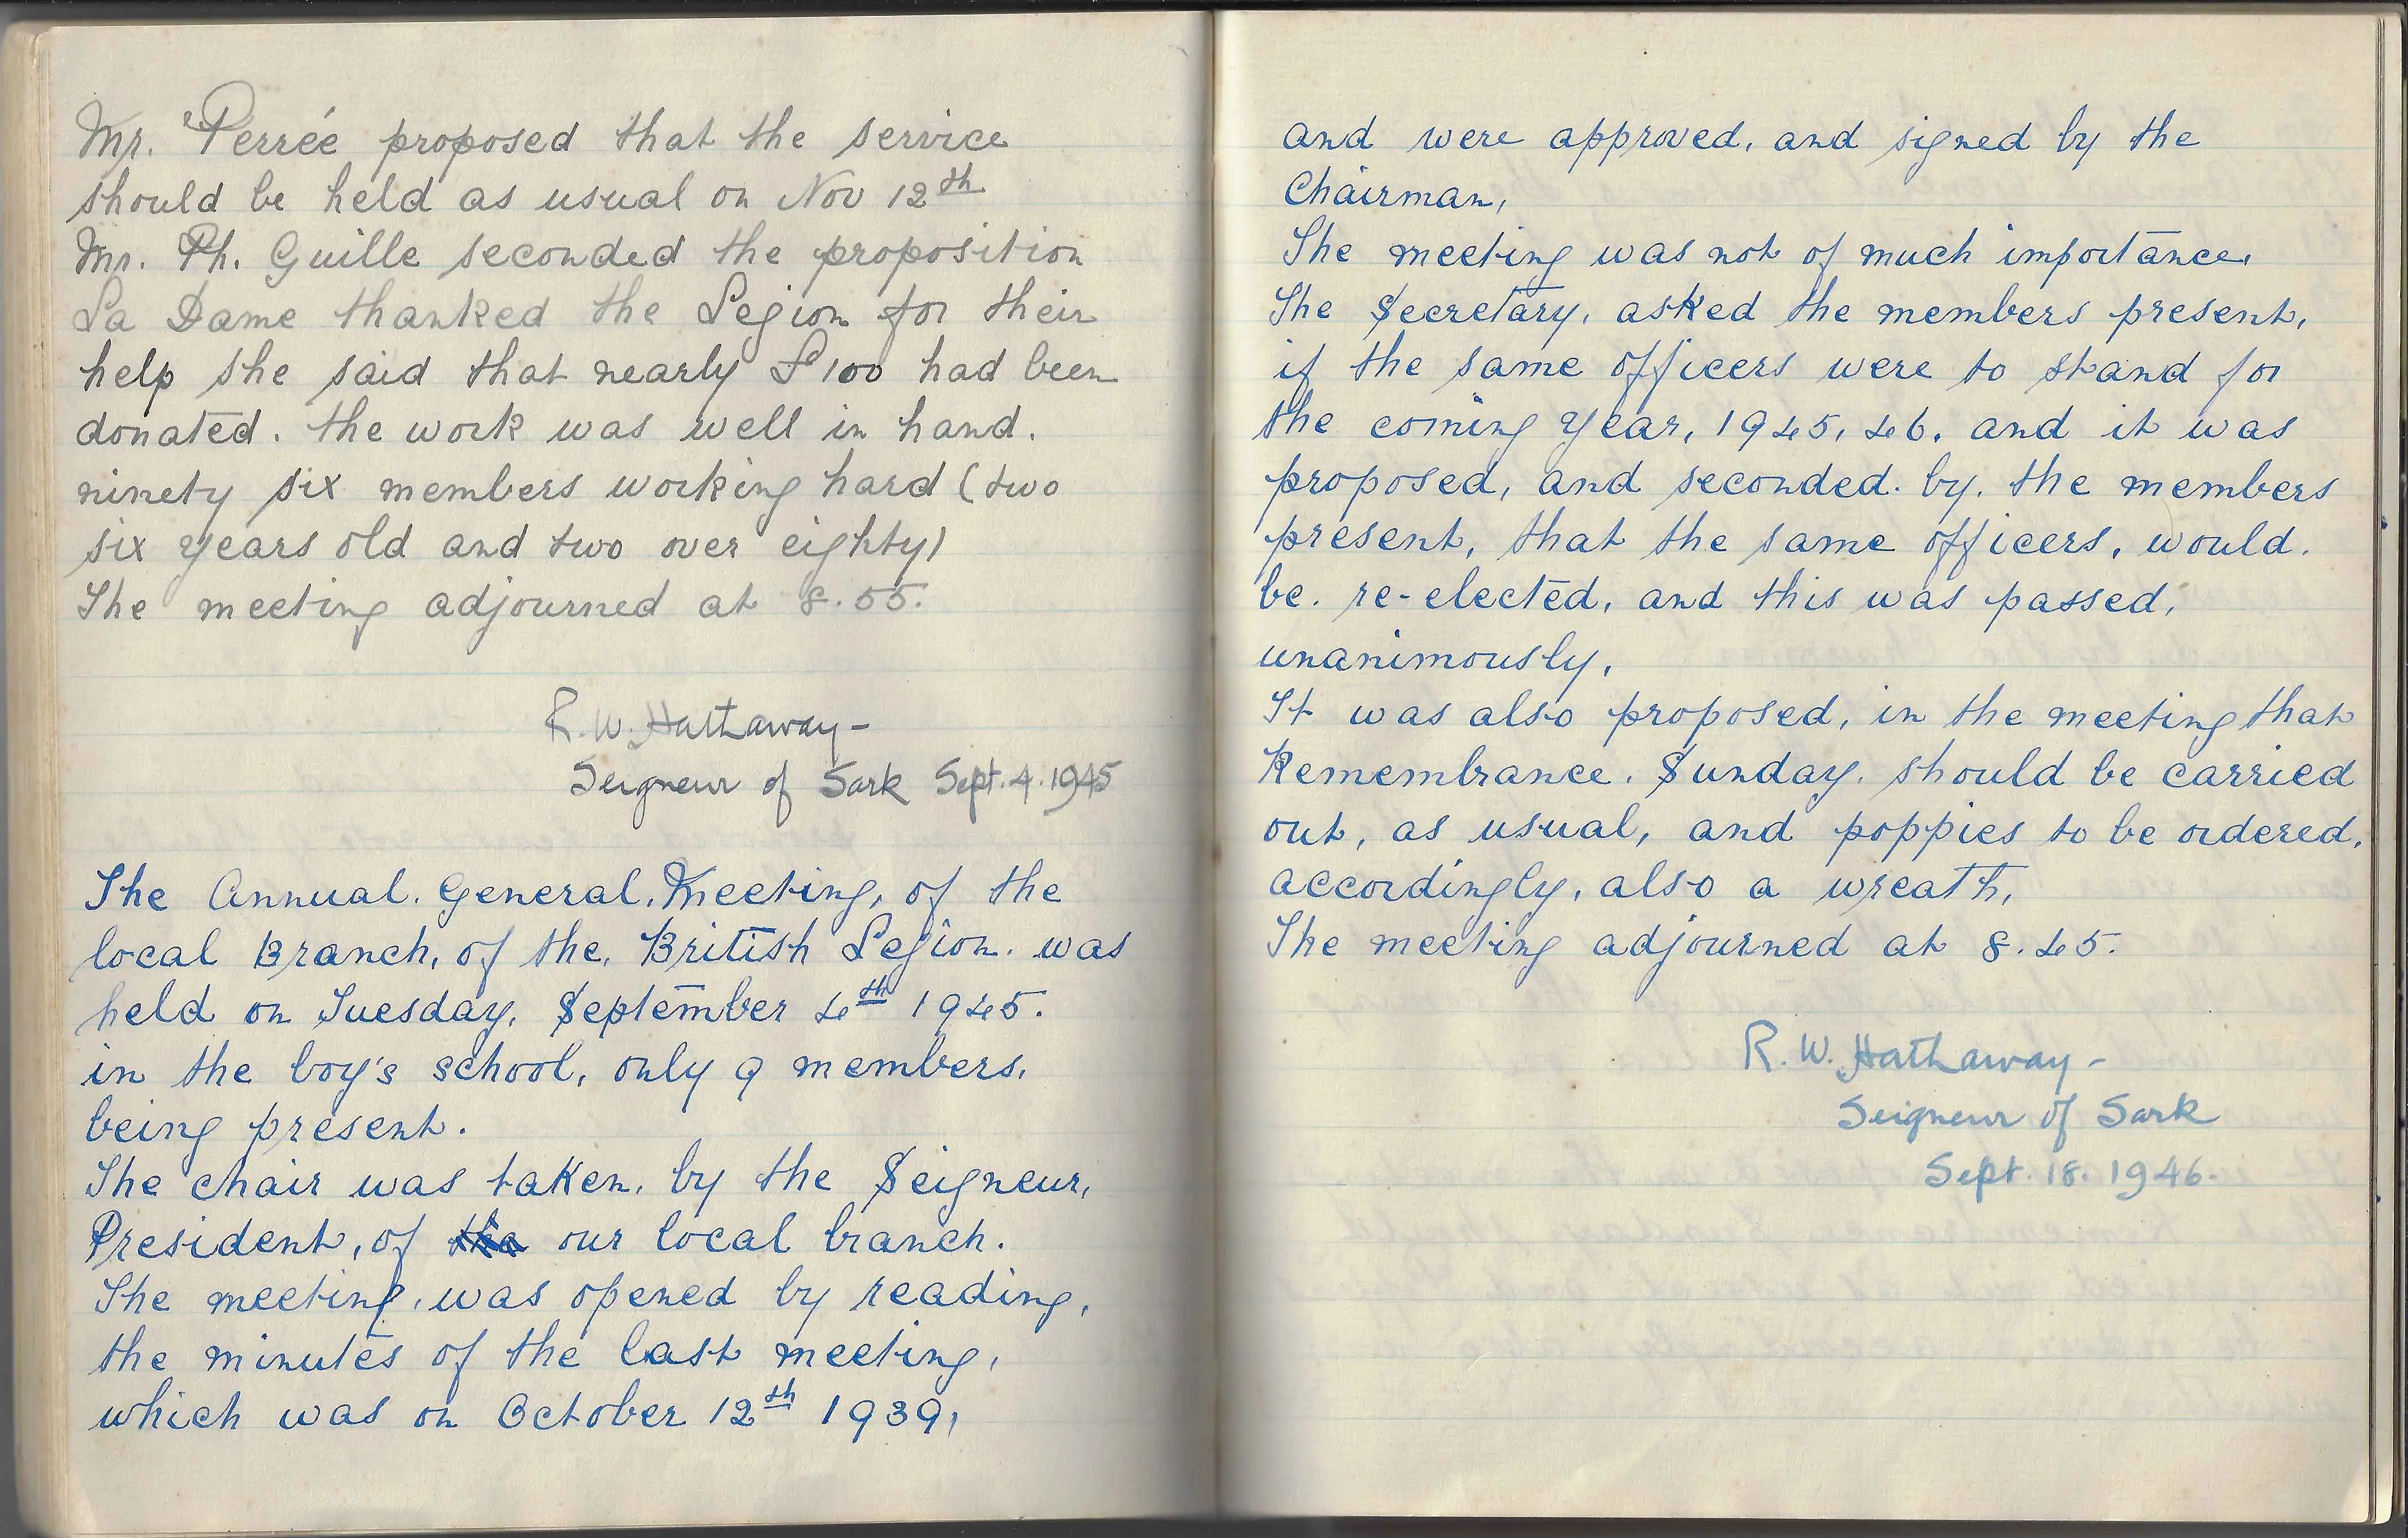 Mr. Perrée proposed that the service
should be held as usual on Nov 12th
Mr. Ph. Guille seconded the proposition
La Dame thanked the Legion for their
help she said that nearly £100 had been
donated. the work was well in hand.
ninety six members working hard (two
six years old and two over eighty)
The meeting adjourned at 8.55.
R.W. Hathaway-
Seigneur of Sark Sept. 4. 1945
The Annual. General. Meeting, of the
local Branch, of the, British Legion. was
held on Tuesday, September 4th 1945.
in the boy's school, only 9 members,
being present.
The chair was taken, by the Seigneur,
President, of the our local branch.
The meeting, was opened by reading,
the minutes of the last meeting,
which was on October 12th 1939,
and were approved, and signed by the
Chairman,
The meeting was not of much importance,
The Secretary, asked the members present,
if the same officers were to stand for
the coming year, 1945, 46, and it was
proposed, and seconded. by. the members
present, that the same officers, would.
be. re-elected, and this was passed,
unanimously,
It was also proposed, in the meeting that
Remembrance. Sunday. should be carried
out, as usual, and poppies to be ordered,
accordingly, also a wreath,
The meeting adjourned at 8.45.
R.W. Hathaway-
Seigneur of Sark
Sept. 18. 1946.